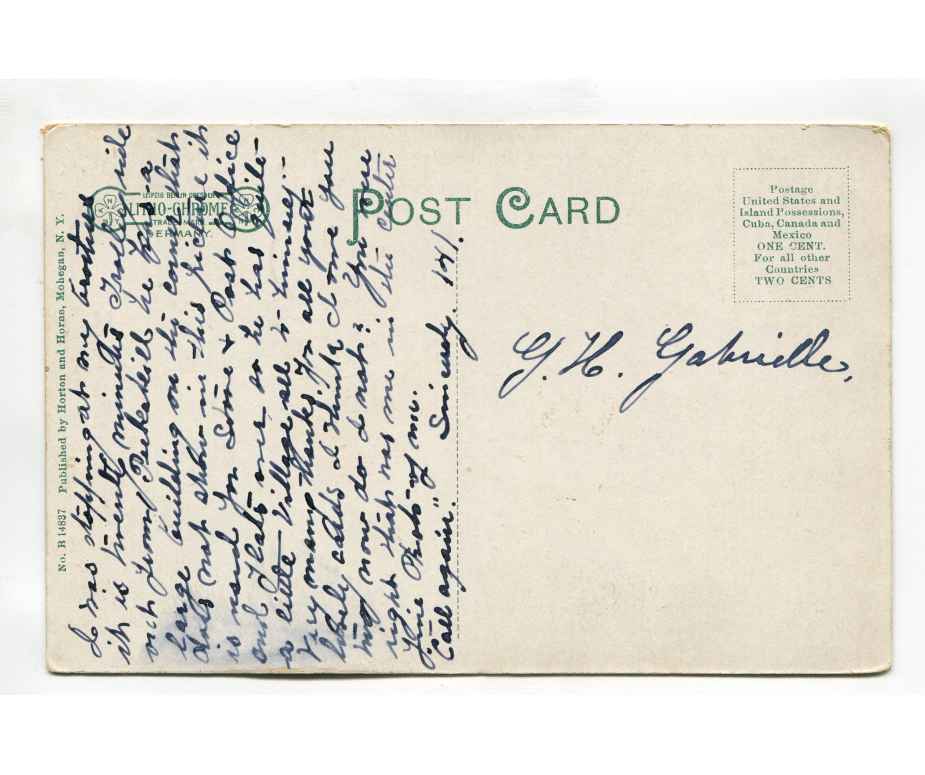 No. R 14837 Published by Horton and Horne, Mohegan, N. Y.
LEIPZIG BERLIN DRESDEN
LITHO-CHROME
TRADE MARK
GERMANY.
POST CARD
Postage
United States and
Island Possessions,
Cuba, Canada and
Mexico
ONE CENT.
For all other
Countries
TWO CENTS
G. H. Gabrielle.
I was stopping at my brothers
it is twenty minutes Trolley ride
out from Peekskill he has a
large building on the corner that
does not show in this picture it
is used for Store & Post Office
and Flats over so he has quite
a little Village all to himself.
Very many thanks for all your
lovely cards I think I owe you
two now do I not? You are
right that was me in the center
fine Photo of me.
"Call again," Sincerely.